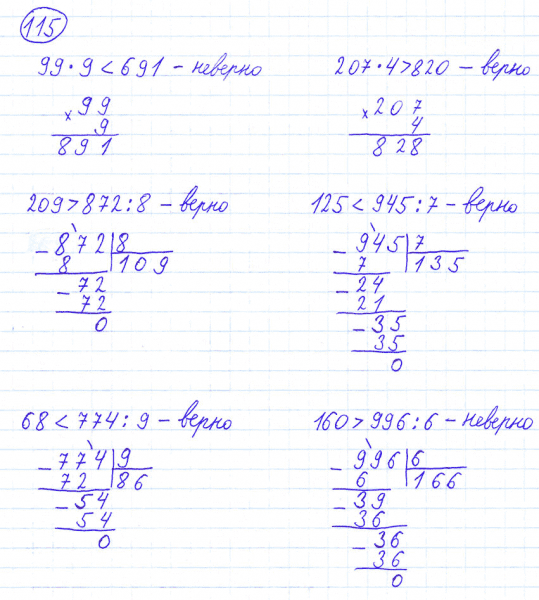 115
99 · 9 < 691 – неверно
207 · 4 > 820 – верно
× 99
9
891
× 207
4
828
209 > 872 : 8 – верно
125 < 945 : 7 – верно
– 872 | 8
8 | 109
– 72
72
0
– 945 | 7
7 | 135
– 24
21
– 35
35
0
68 < 774 : 9 – верно
160 > 996 : 6 – неверно
– 774 | 9
72 | 86
– 54
54
0
– 996 | 6
6 | 166
– 39
36
– 36
36
0